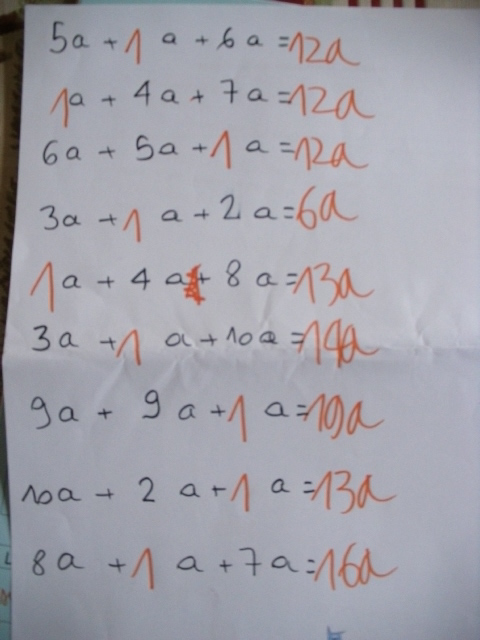 5a + 1 a + 6a = 12a
1a + 4a + 7a = 12a
6a + 5a + 1 a = 12a
3a + 1 a + 2 a = 6a
1a + 4 a + 8 a = 13a
3a + 1 a + 10a = 14a
9a + 9 a + 1 a = 19a
10a + 2 a + 1 a = 13a
8a + 1 a + 7a = 16a